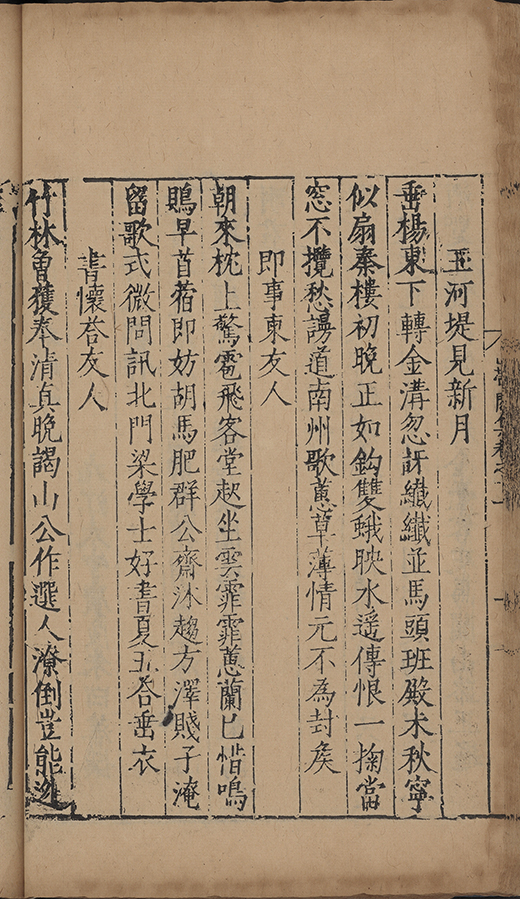 玉河堤見新月
垂楊東下轉金溝忽訝纖纖並馬頭班殿未秋寧
似扇秦樓初晚正如鈎雙蛾映水遥傳恨一掬當
窓不攬愁謾道南州歌蕙草薄情元不為封矦
即事柬友人
朝來枕上驚雹飛客堂起坐雲霏霏蕙蘭已惜鳴
鵙早苜蓿即妨胡馬肥群公齋沐趨方澤賤子淹
留歌式微問訊北門梁學士好書夏五答垂衣
書懷答友人
竹林曾獲奉清真晚謁山公作選人潦倒豈能